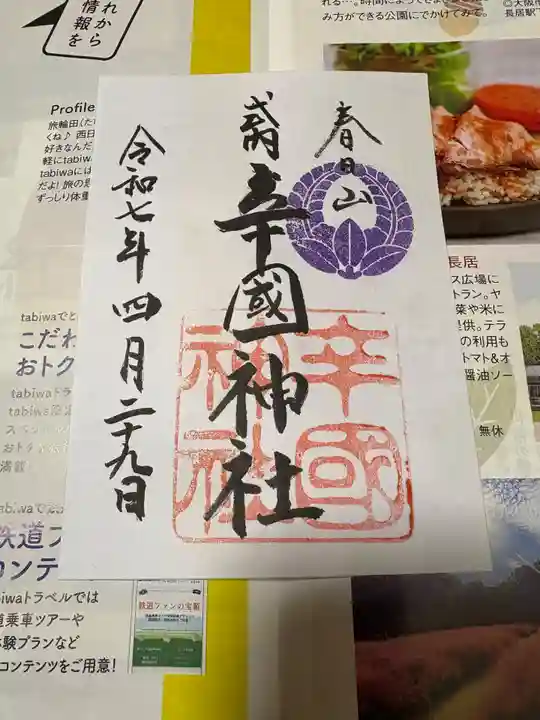 春日山
式内辛國神社
令和七年四月二十九日
辛國
神社
れから
情報を
Profile
旅輪田
くね♪ 西日
好きなんだ
軽にtabiwa
tabiwaには
だよ！旅の
ずっしり体重
tabiwaでと
こだわ
おトク
tabiwaトラ
tabiwa限定
スペシ
おトク
満載！
tabiwaで
鉄道フ
コンテ
biwaトラベルでは
道乗車ツアーや
体験プランなど
コンテンツをご用意！
鉄道ファンの宝箱
れる…。時間によって
み方ができる公園にでかけてみて。
©大阪市
長居駅
長居
ス広場に
トラン。ヤ
菜や米に
提供。テラ
の利用も
トマト&オ
醤油ソー
無休